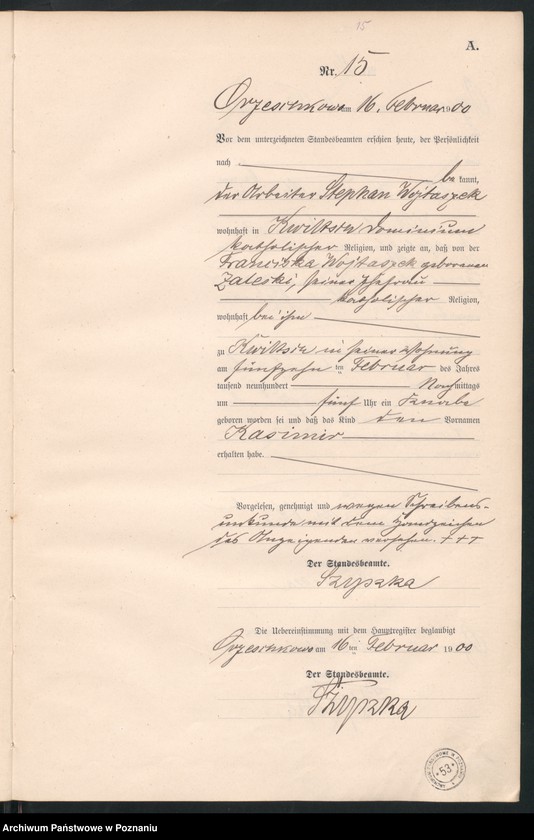 15
A.
Nr. 15
Orzeschkowo am 16. Februar 1900
Vor dem unterzeichneten Standesbeamten erschien heute, der Persönlichkeit
nach
be kannt,
der Arbeiter Stephan Wojtaszek
wohnhaft in Kwiltsch Dominium
katholischer Religion, und zeigte an, daß von der
Franciszka Wojtaszek geborenen
Zaleski, seiner Ehefrau
katholischer Religion,
wohnhaft bei ihm
zu Kwiltsch in seiner Wohnung
am fünfzehn ten Februar des Jahres
tausend neunhundert Nachmittags
um fünf Uhr ein Knabe
geboren worden sei und daß das Kind den Vornamen
Kasimir
erhalten habe.
Vorgelesen, genehmigt und wegen Schreibens-
unkunde mit dem Handzeichen
des Anzeigenden versehen. + + +
Der Standesbeamte.
Szyszka
Die Uebereinstimmung mit dem Hauptregister beglaubigt
Orzeschkowo am 16 ten Februar 1900
Der Standesbeamte.
Szyszka
53
Archiwum Państwowe w Poznaniu